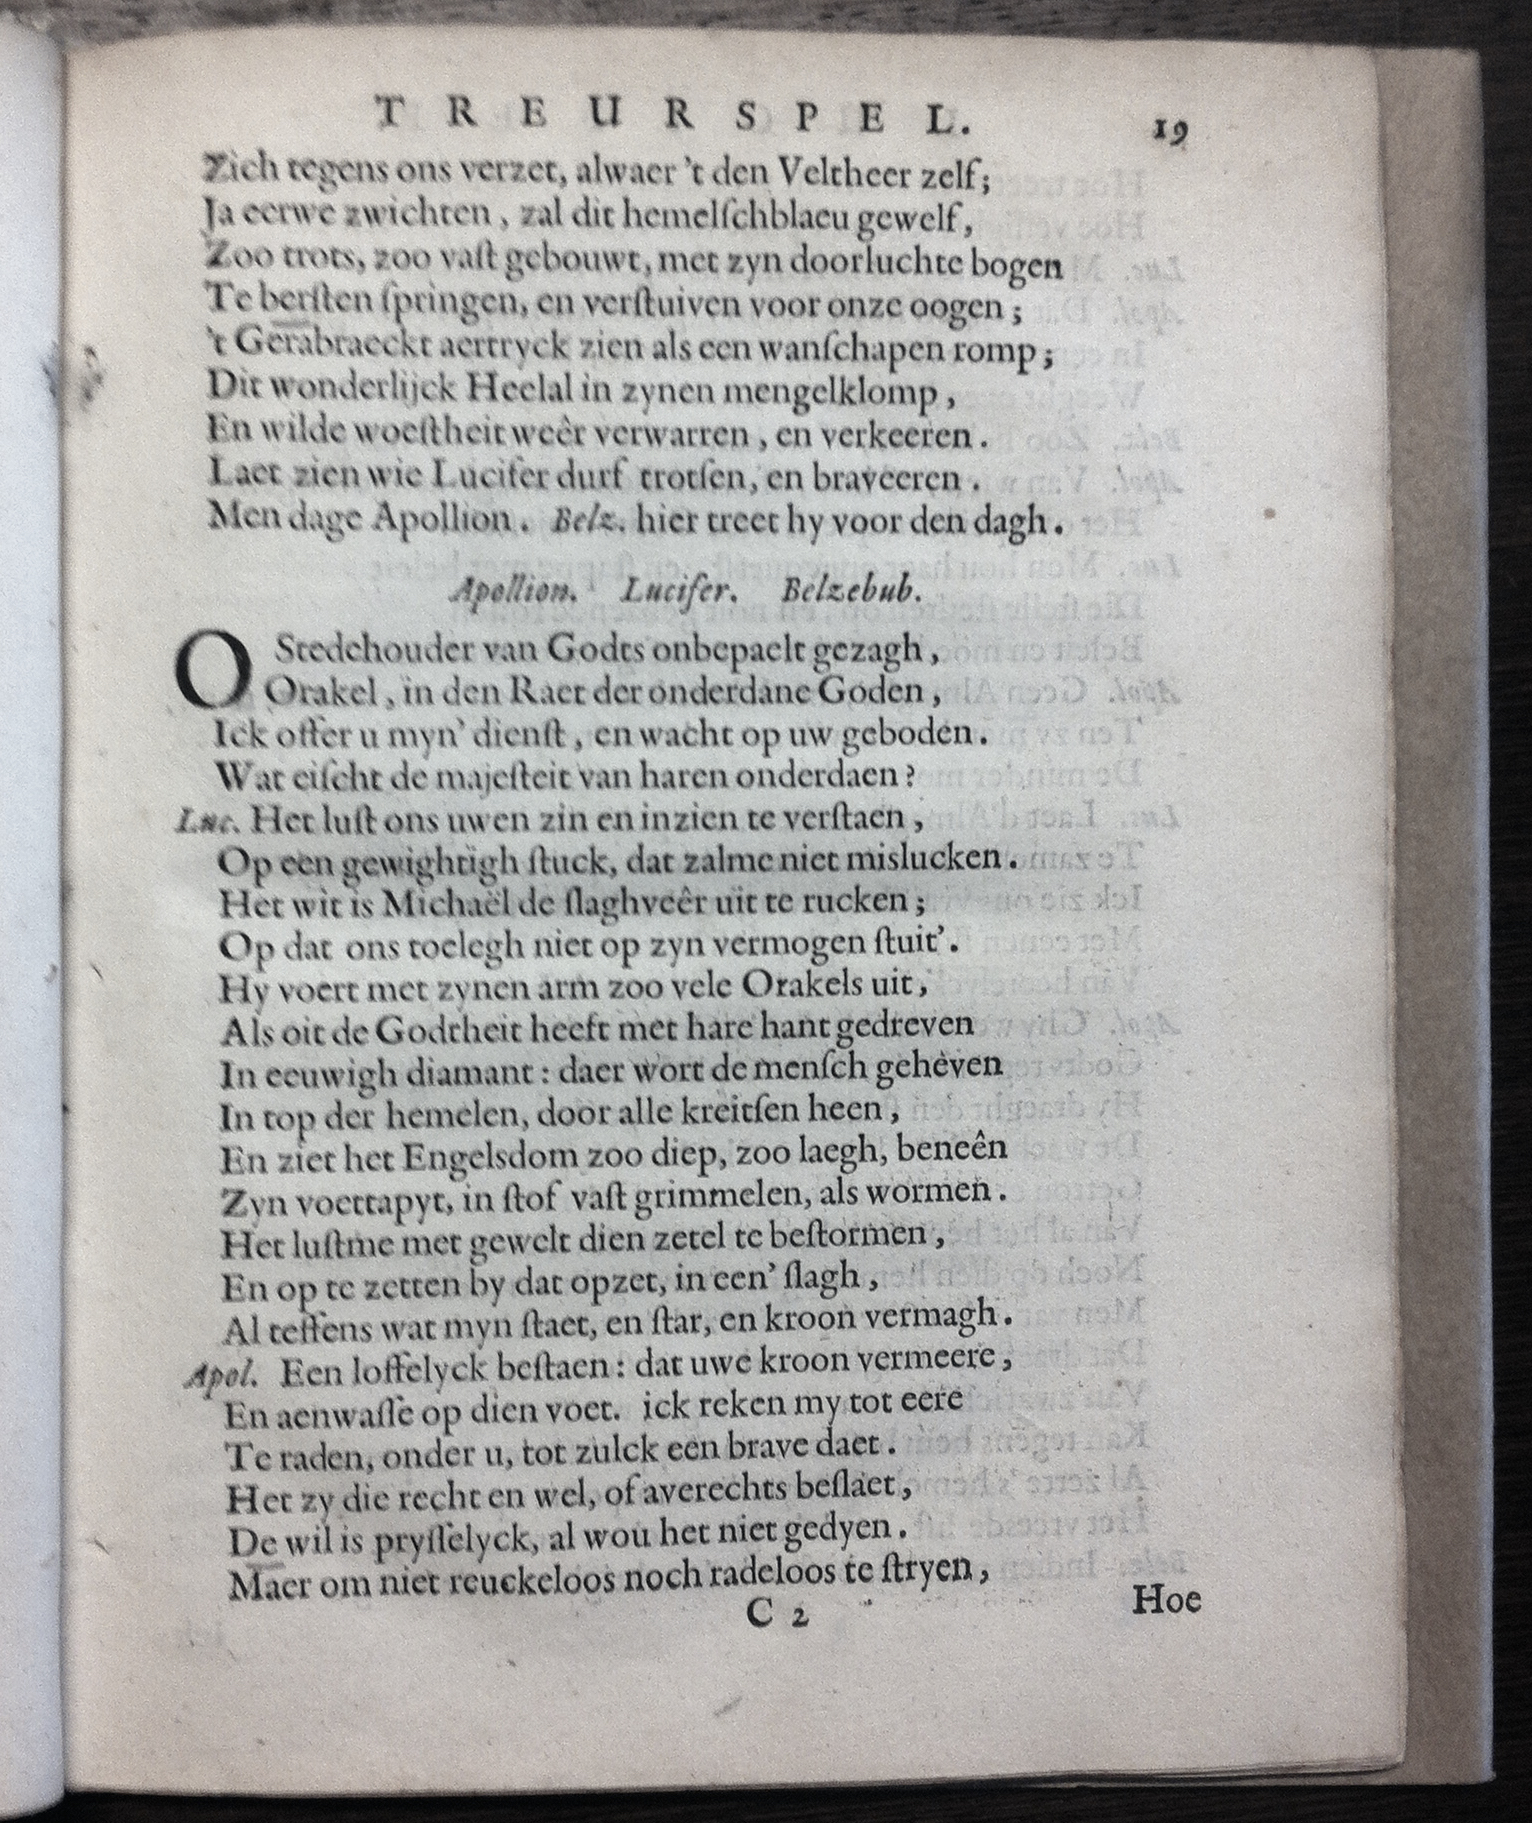 TREURSPEL. 19
Zich tegens ons verzet, alwaer 't den Veltheer zelf;
Ja eerwe zwichten, zal dit hemelſchblaeu gewelf,
Zoo trots, zoo vaſt gebouwt, met zyn doorluchte bogen
Te berſten ſpringen, en verſtuiven voor onze oogen;
't Gerabraeckt aertryck zien als een wanſchapen romp;
Dit wonderlijck Heelal in zynen mengelklomp,
En wilde woeſtheit weêr verwarren, en verkeeren.
Laet zien wie Lucifer durf trotſen, en braveeren.
Men dage Apollion. Belz. hier treet hy voor den dagh.
Apollion. Lucifer. Belzebub.
O Stedehouder van Godts onbepaelt gezagh,
Orakel, in den Raet der onderdane Goden,
Ick offer u myn' dienſt, en wacht op uw geboden.
Wat eiſcht de majeſteit van haren onderdaen?
Luc. Het luſt ons uwen zin en inzien te verſtaen,
Op een gewightigh ſtuck, dat zalme niet mislucken.
Het wit is Michaël de ſlaghveêr uit te rucken;
Op dat ons toelegh niet op zyn vermogen ſtuit'.
Hy voert met zynen arm zoo vele Orakels uit,
Als oit de Godtheit heeft met hare hant gedreven
In eeuwigh diamant: daer wort de menſch gehèven
In top der hemelen, door alle kreitſen heen,
En ziet het Engelsdom zoo diep, zoo laegh, beneên
Zyn voettapyt, in ſtof vaſt grimmelen, als wormen.
Het luſtme met gewelt dien zetel te beſtormen,
En op te zetten by dat opzet, in een' ſlagh,
Al teffens wat myn ſtaet, en ſtar, en kroon vermagh.
Apol. Een loffelyck beſtaen: dat uwe kroon vermeere,
En aenwaſſe op dien voet. ick reken my tot eere
Te raden, onder u, tot zulck een brave daet.
Het zy die recht en wel, of averechts beſlaet,
De wil is pryſſelyck, al wou het niet gedyen.
Maer om niet reuckeloos noch radeloos te ſtryen,
C 2 Hoe